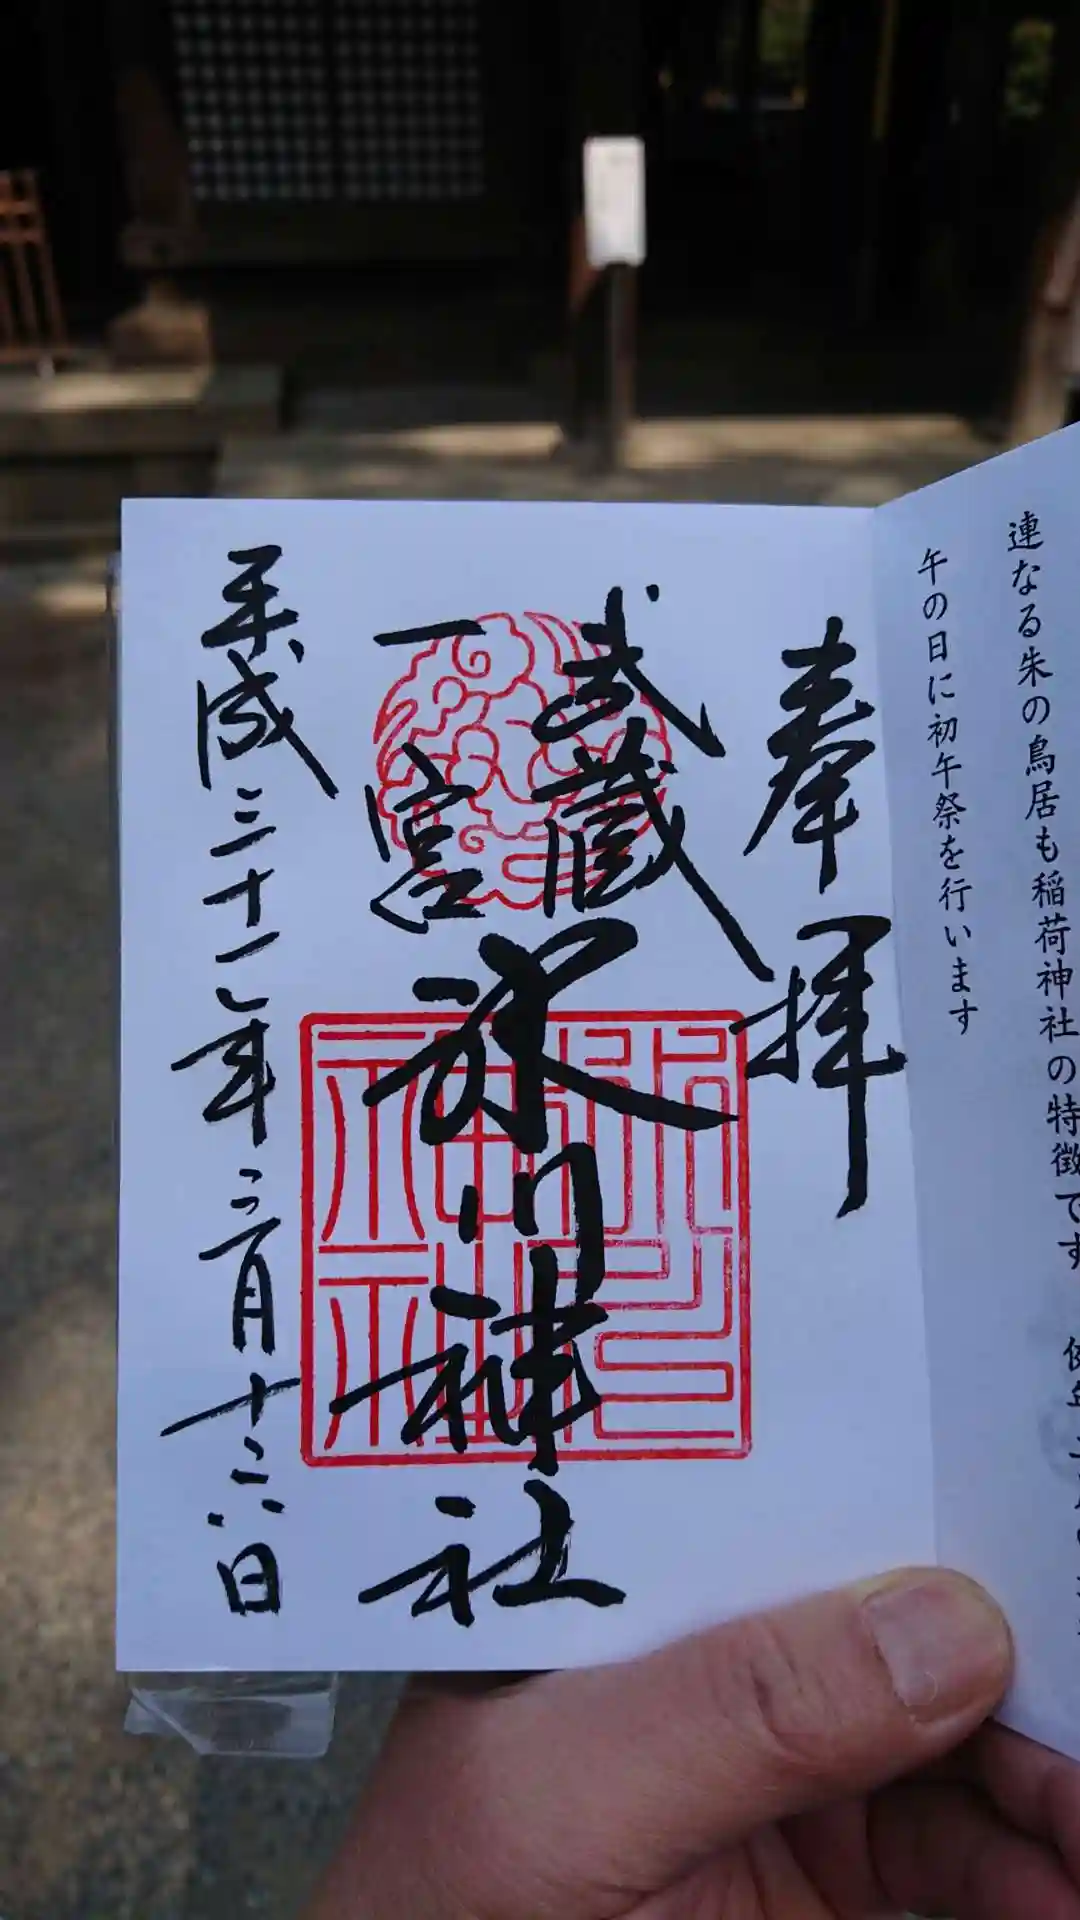 連なる朱の鳥居も稲荷神社の特徴です
午の日に初午祭を行います
奉拝
武蔵
一宮
氷川神社
平成三十一年三月十六日